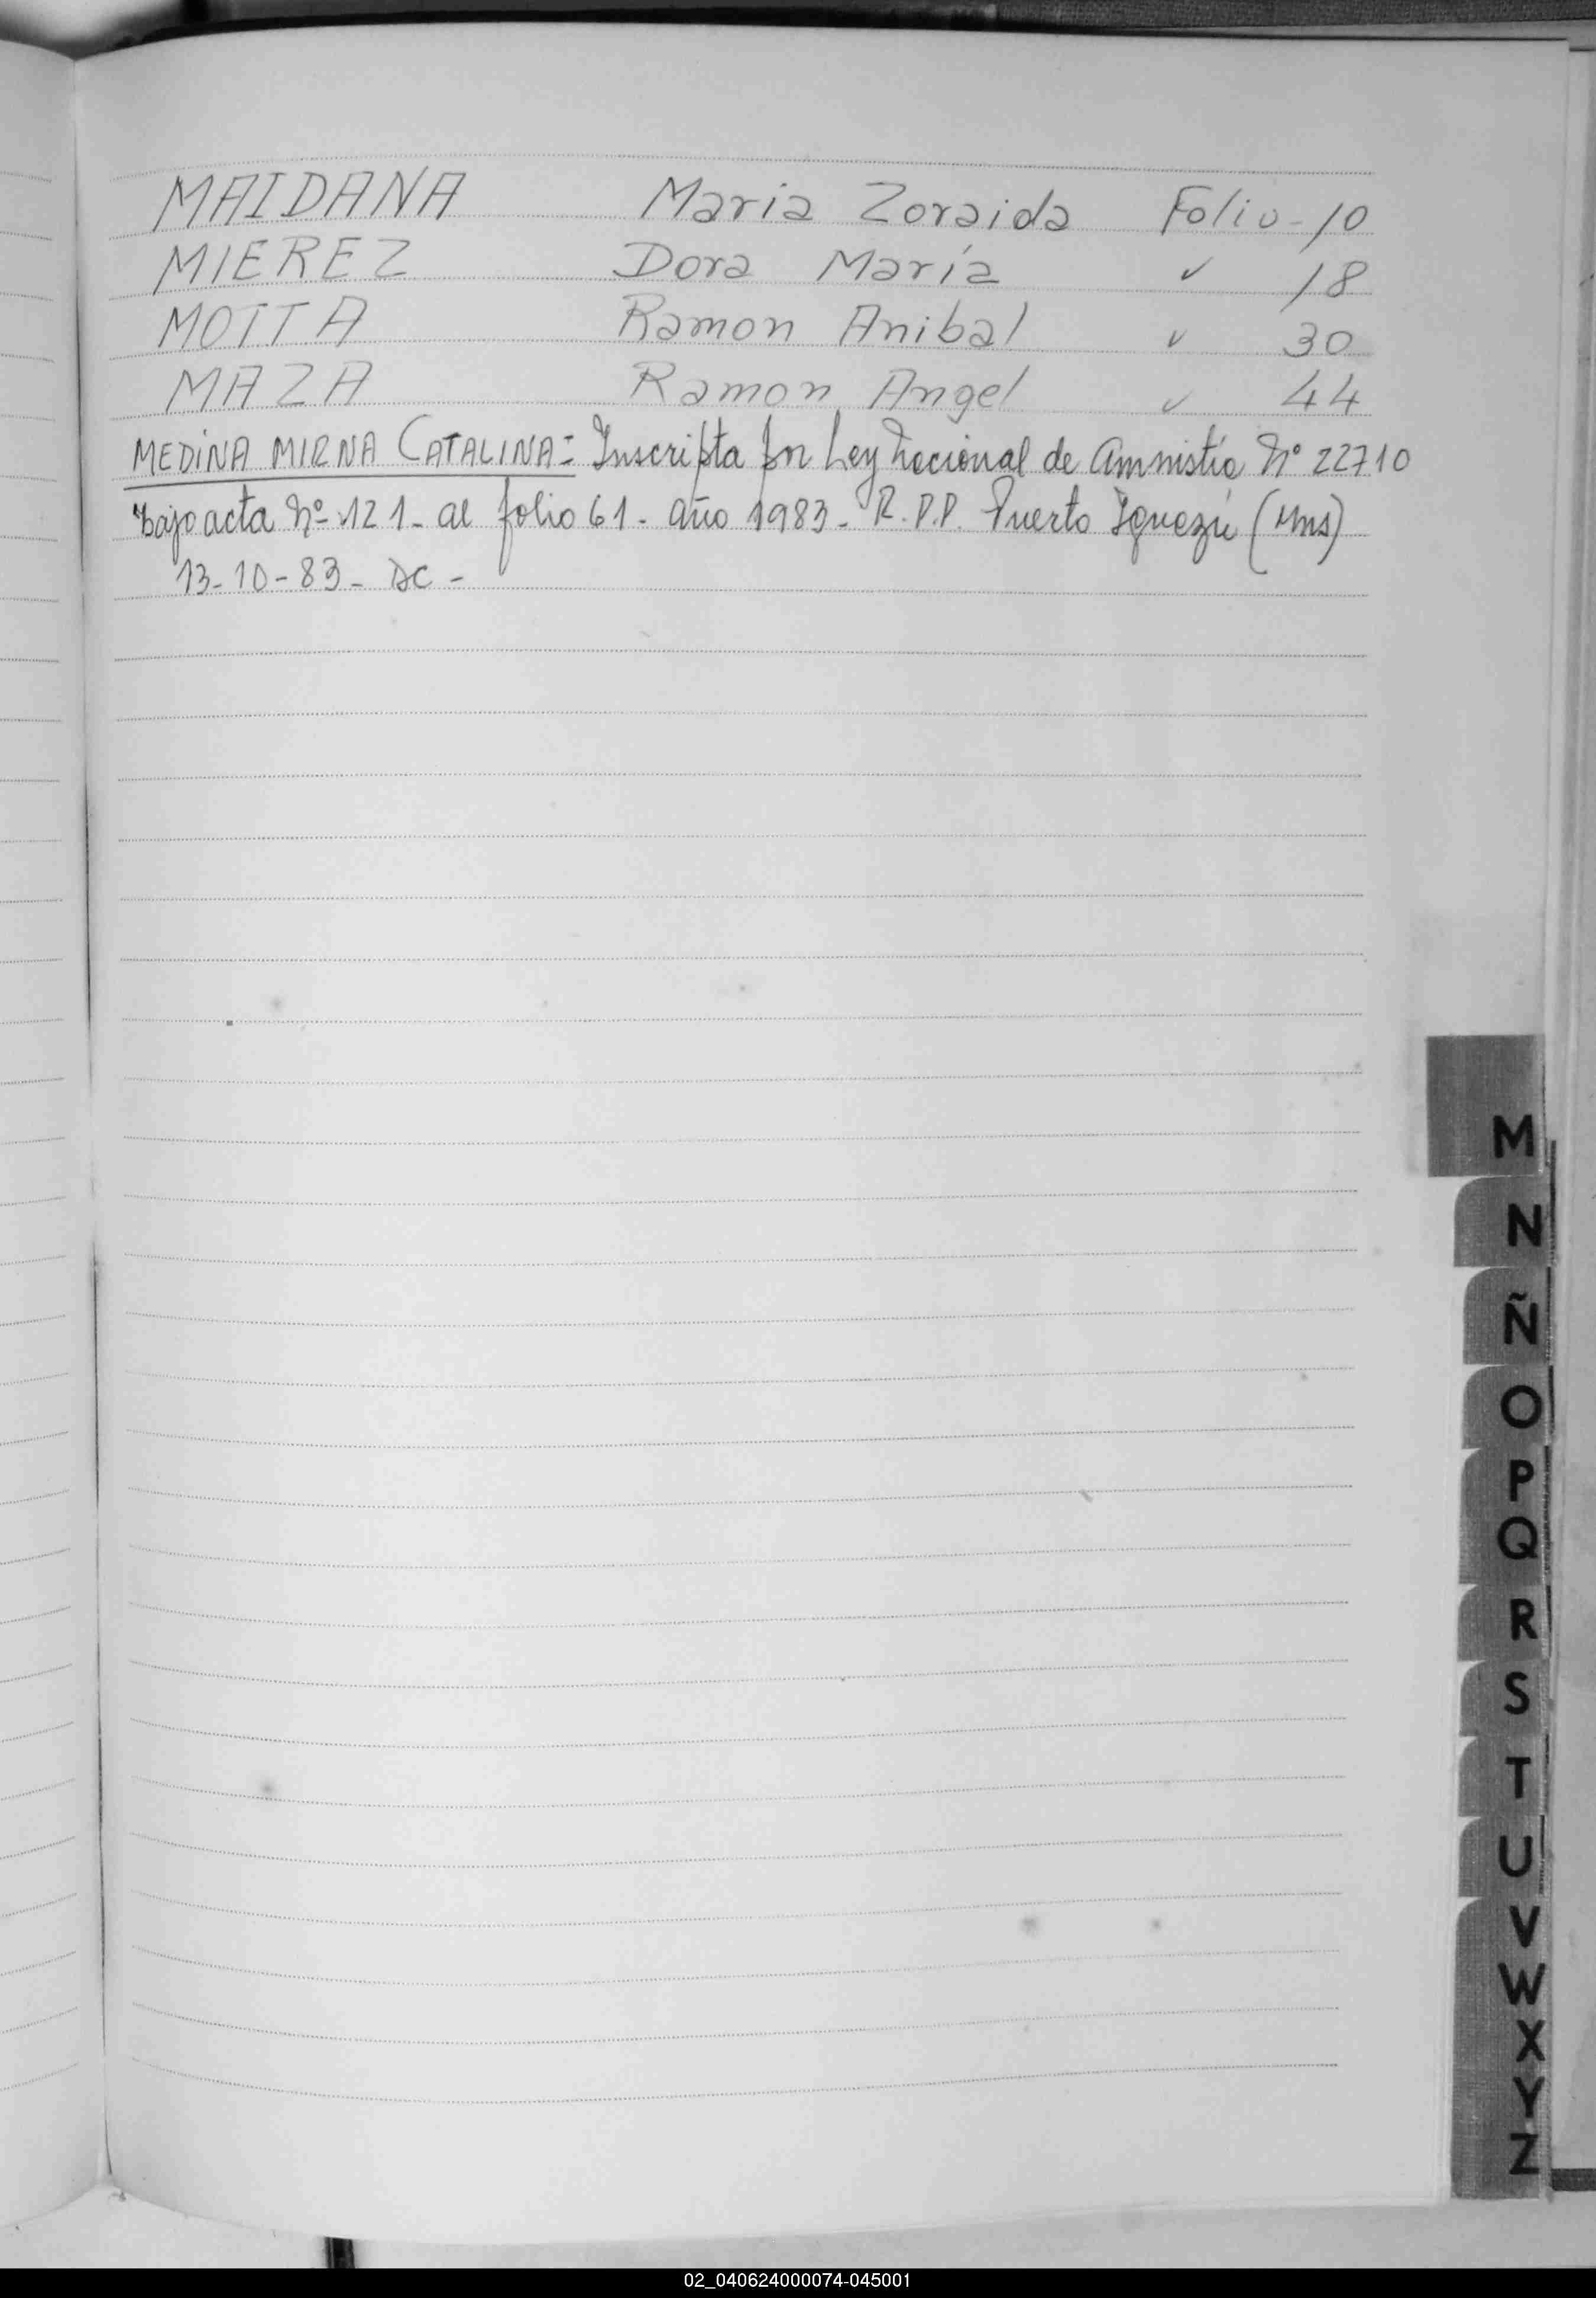 MAIDANA Maria Zoraida Folio - 10
MIEREZ Dora María " 18
MOTTA Ramon Anibal " 30
MAZA Ramon Angel " 44
MEDINA MIRNA CATALINA = Inscripta por Ley Nacional de Amnistía Nº 22710
bajo acta Nº 121- al folio 61- año 1983- R.P.P. Puerto Iguazú (Mns)
13-10-83- DC -
M
N
Ñ
O
P
Q
R
S
T
U
V
W
X
Y
Z
02_040624000074-045001